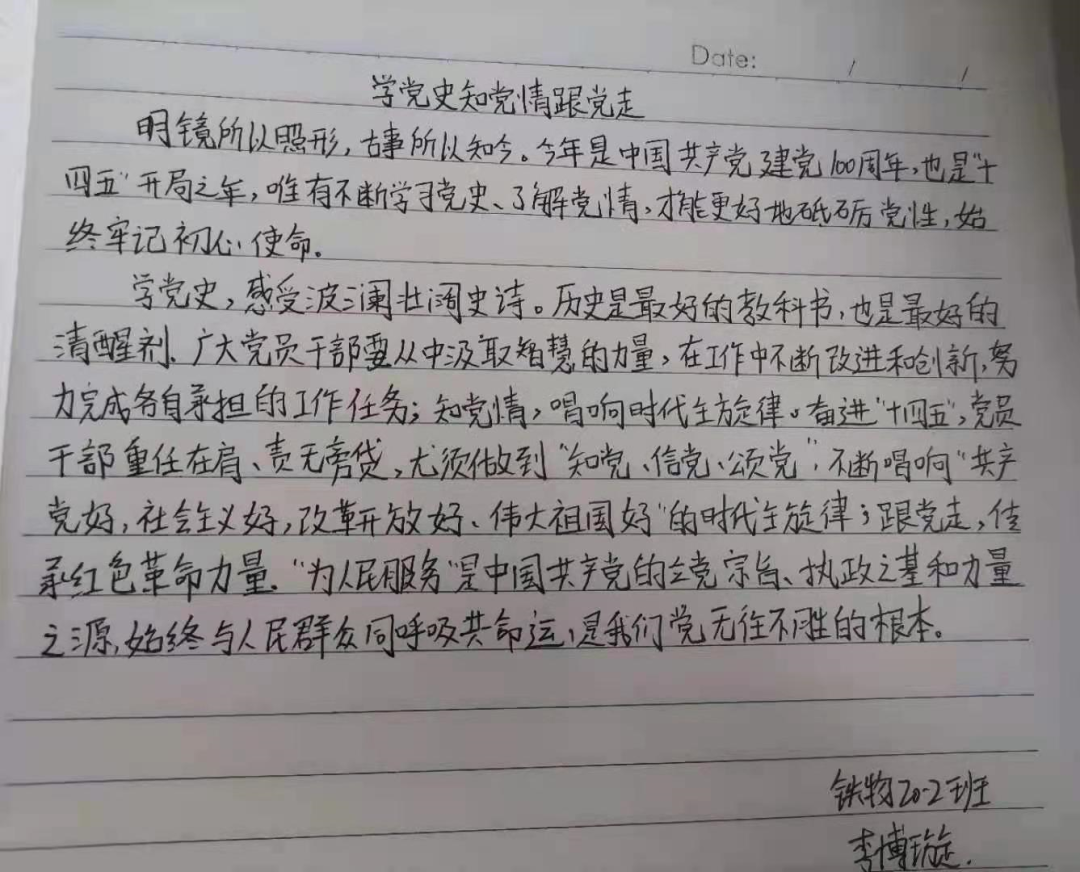 Date: / /
学党史知党情跟党走
明镜所以照形,古事所以知今。今年是中国共产党建党100周年,也是“十
四五”开局之年,唯有不断学习党史、了解党情,才能更好地砥砺党性,始
终牢记初心使命。
学党史,感受波澜壮阔史诗。历史是最好的教科书,也是最好的
清醒剂。广大党员干部要从中汲取智慧的力量,在工作中不断改进和创新,努
力完成各自承担的工作任务;知党情,唱响时代主旋律。奋进“十四五”,党员
干部重任在肩、责无旁贷,尤须做到“知党、信党、颂党”,不断唱响“共产
党好,社会主义好,改革开放好、伟大祖国好”的时代主旋律;跟党走,传
承红色革命力量。“为人民服务”是中国共产党的立党宗旨、执政之基和力量
之源,始终与人民群众同呼吸共命运,是我们党无往不胜的根本。
铁物20-2班
李博璇.